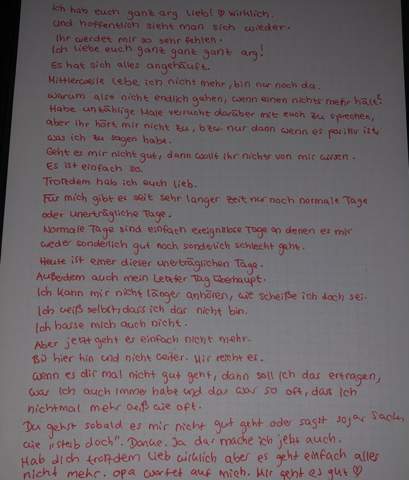 Ich hab euch ganz arg lieb! ♡ wirklich.
und hoffentlich sieht man sich wieder.
Ihr werdet mir so sehr fehlen.
Ich liebe euch ganz ganz ganz arg!
Es hat sich alles angehäuft.
Mittlerweile lebe ich nicht mehr, bin nur noch da.
warum also nicht endlich gehen, wenn einen nichts mehr hält?
Habe unzählige Male versucht darüber mit euch zu sprechen,
aber ihr hört mir nicht zu, bzw. nur dann wenn es positiv ist,
was ich zu sagen habe.
Geht es mir nicht gut, dann wollt ihr nichts von mir wissen.
Es ist einfach so.
Trotzdem hab ich euch lieb.
Für mich gibt es seit sehr langer Zeit nur noch normale Tage
oder unerträgliche Tage.
Normale Tage sind einfach ereignislose Tage an denen es mir
weder sonderlich gut noch sonderlich schlecht geht.
Heute ist einer dieser unerträglichen Tage.
Außerdem auch mein letzter Tag überhaupt.
Ich kann mir nicht länger anhören, wie scheiße ich doch sei.
Ich weiß selbst, dass ich das nicht bin.
Ich hasse mich auch nicht.
Aber jetzt geht es einfach nicht mehr.
Bis hier hin und nicht weiter. Mir reicht es.
wenn es dir mal nicht gut geht, dann soll ich das ertragen,
was ich auch immer habe und das war so oft, das ich
nichtmal mehr weiß wie oft.
Du gehst sobald es mir nicht gut geht oder sagst sogar Sachen
wie "stirb doch". Danke. Ja das mache ich jetzt auch.
Hab dich trotzdem lieb wirklich aber es geht einfach alles
nicht mehr. opa wartet auf mich. Mir geht es gut ♡